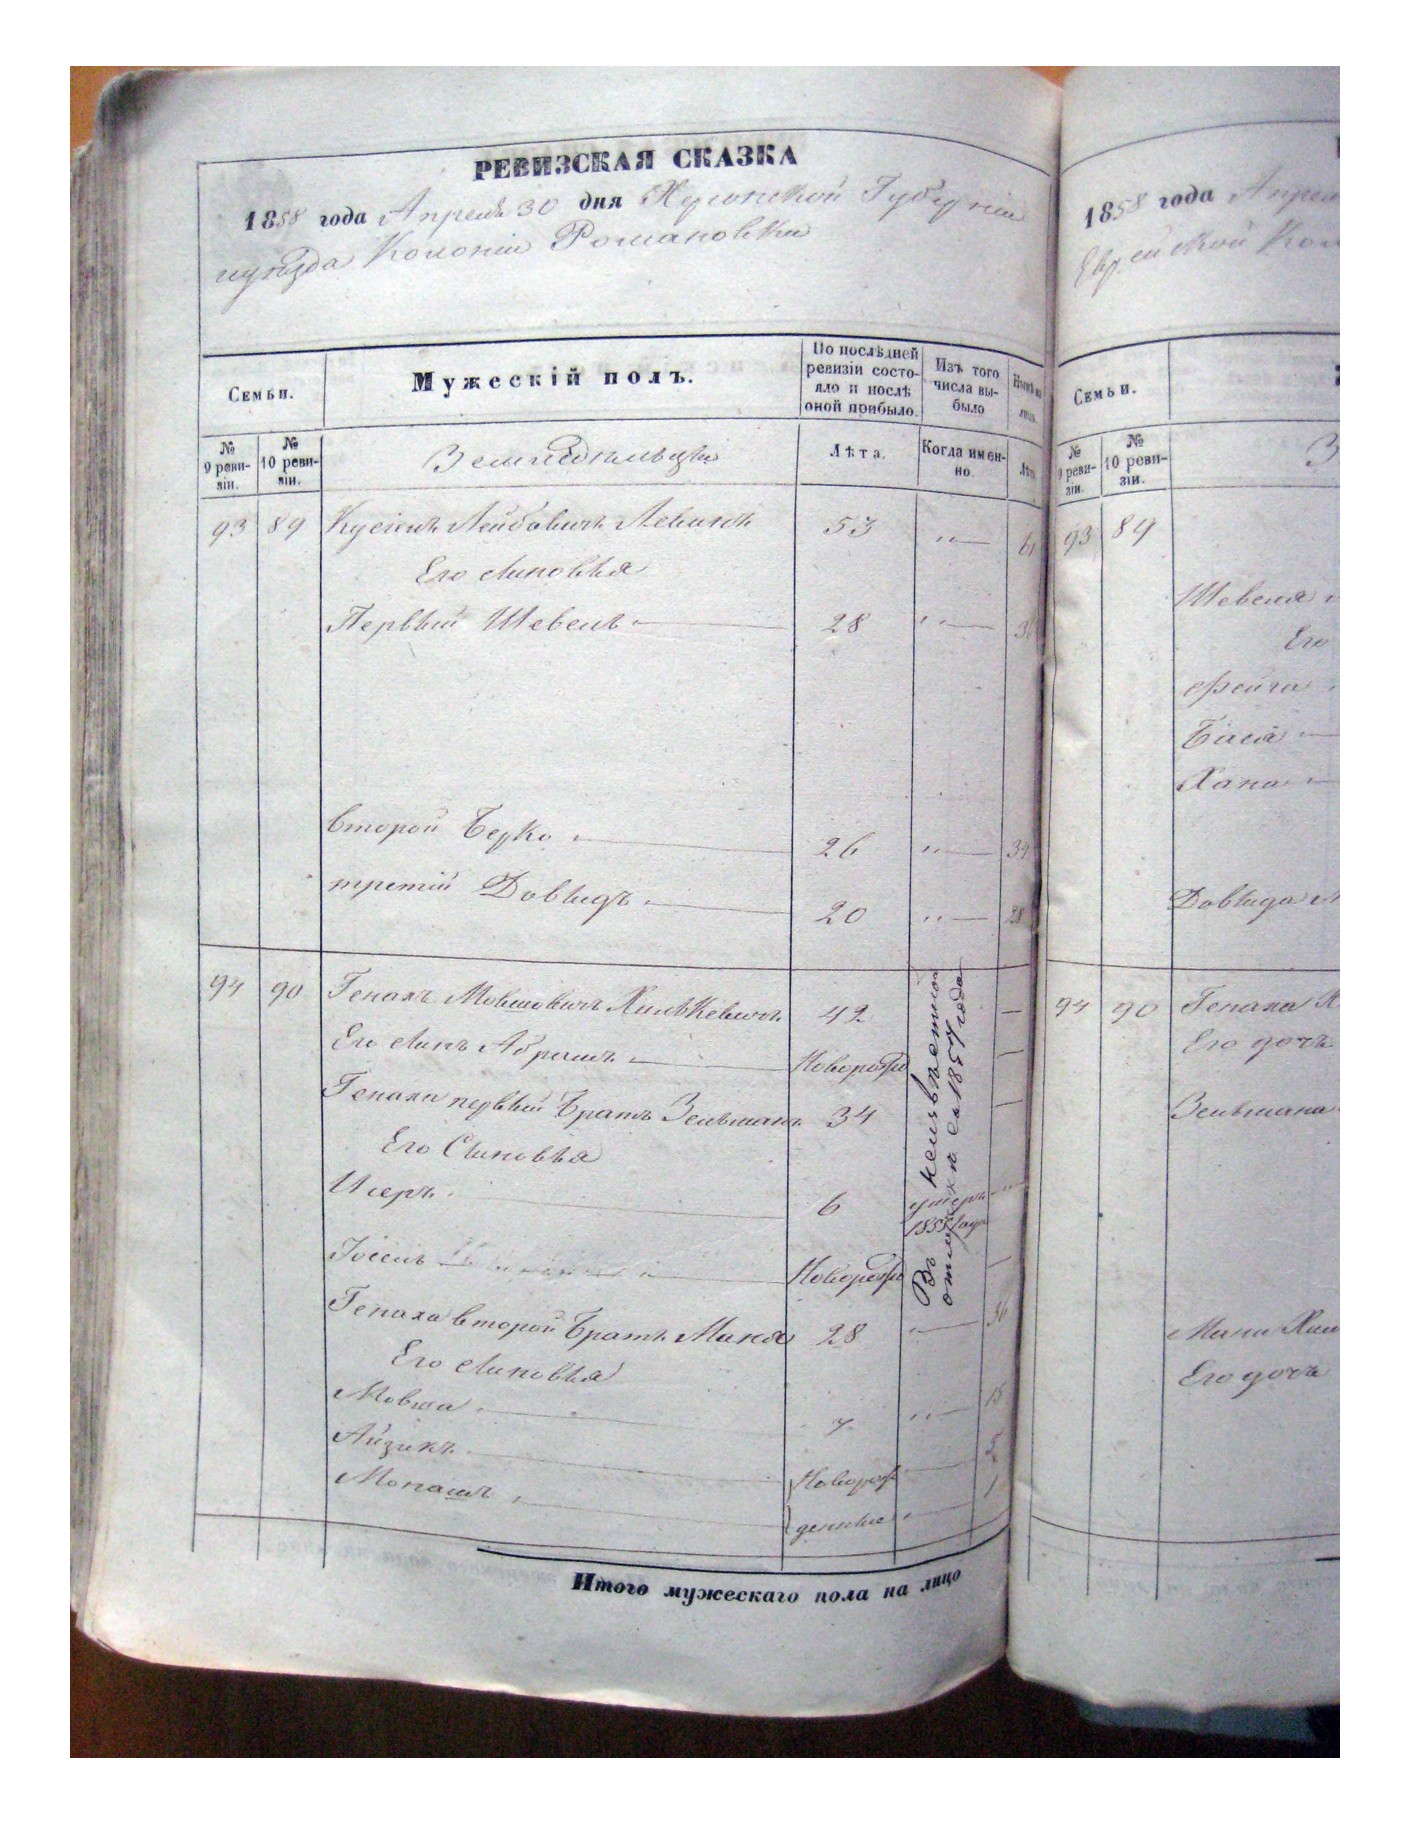 РЕВИЗСКАЯ СКАЗКА
1858 года Апреля 30 дня Херсонской Губерніи
и уѣзда Колоніи Романовки
Семьи.
Мужескій полъ.
По послѣдней
ревизіи состо-
яло и послѣ
оной прибыло.
Изъ того
числа вы-
было
лицо.
№
9 реви-
зіи.
№
10 реви-
зіи.
Земледѣльцы
Лѣта.
Когда имен-
но.
Лѣта
93 89 Кусіель Лейбовичъ Левинъ 53 " 61
Его Сыновья
Первый Шевель 28 " 36
второй Берко 26 " 34
третій Довыдъ 20 " 28
94 90 Генахъ Мовшовичъ Хилькевичъ 42
Его Сынъ Абрамъ Новорож
Генаха первый Братъ Зельманъ 34
Его Сыновья
Исеръ 6 умеръ
1855 года
Іосель Новорож
Въ неизвѣстной
отлучкѣ съ 1857 года
Генаха второй Братъ Маня 28 " 36
Его Сыновья
Мовша 7 " 15
Айзикъ Новорож 5
Монашъ денные 1
Итого мужескаго пола на лицо
1858 года Апреля
Еврейской
Семьи.
№
9 реви-
зіи.
№
10 реви-
зіи.
З
93 89
Шевеля
Его
Фейга
Бася
Хана
Довыда
94 90 Генаха
Его дочь
Зельмана
Мани
Его дочь